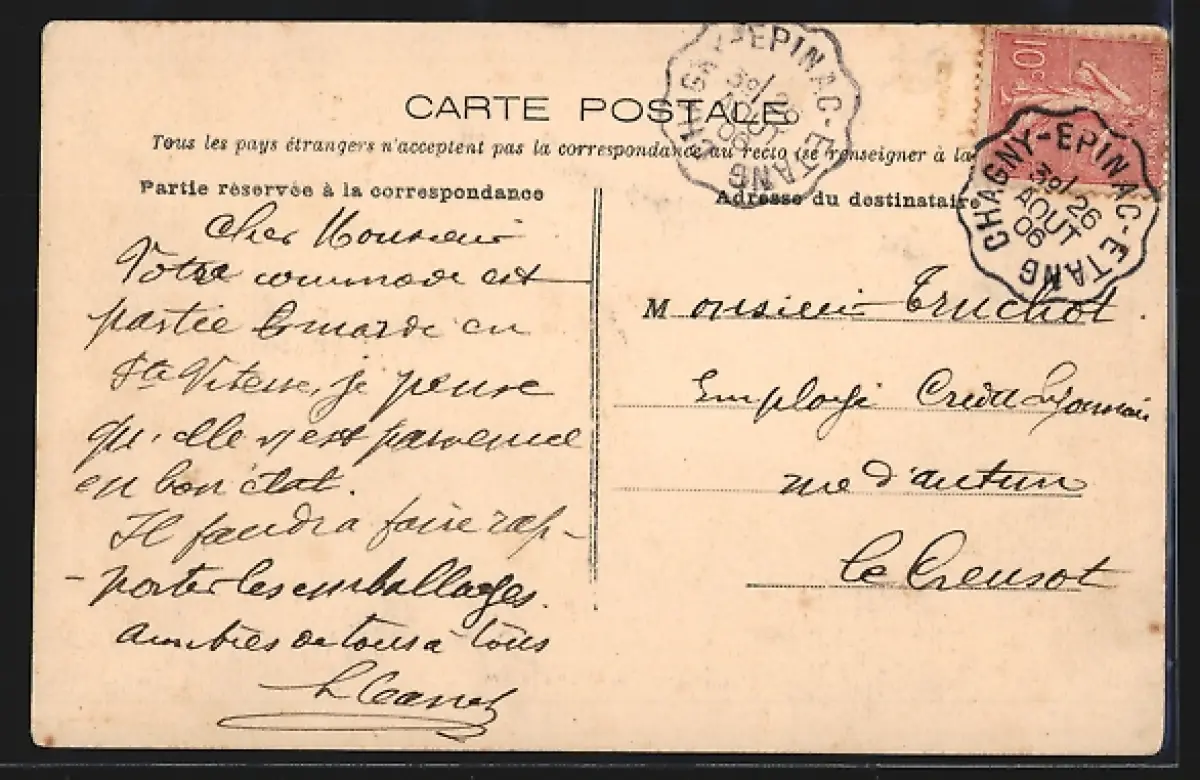 CARTE POSTALE
Tous les pays étrangers n'acceptent pas la correspondance au recto (se renseigner à la
Partie réservée à la correspondance
Adresse du destinataire
Cher Monsieur
Votre commode est
partie en
Vitesse, je pense
qu'elle est parvenue
en bon état.
Il faudra faire rap-
-porter les emballages.
Amitiés de tous à tous
Monsieur Truchot
Employé Crédit Lyonnais
rue d'autun
Le Creusot
10c
CHAGNY-EPINAC-ETANG
3º/26
AOUT
06
CHAGNY-EPINAC-ETANG
3º/26
AOUT
06